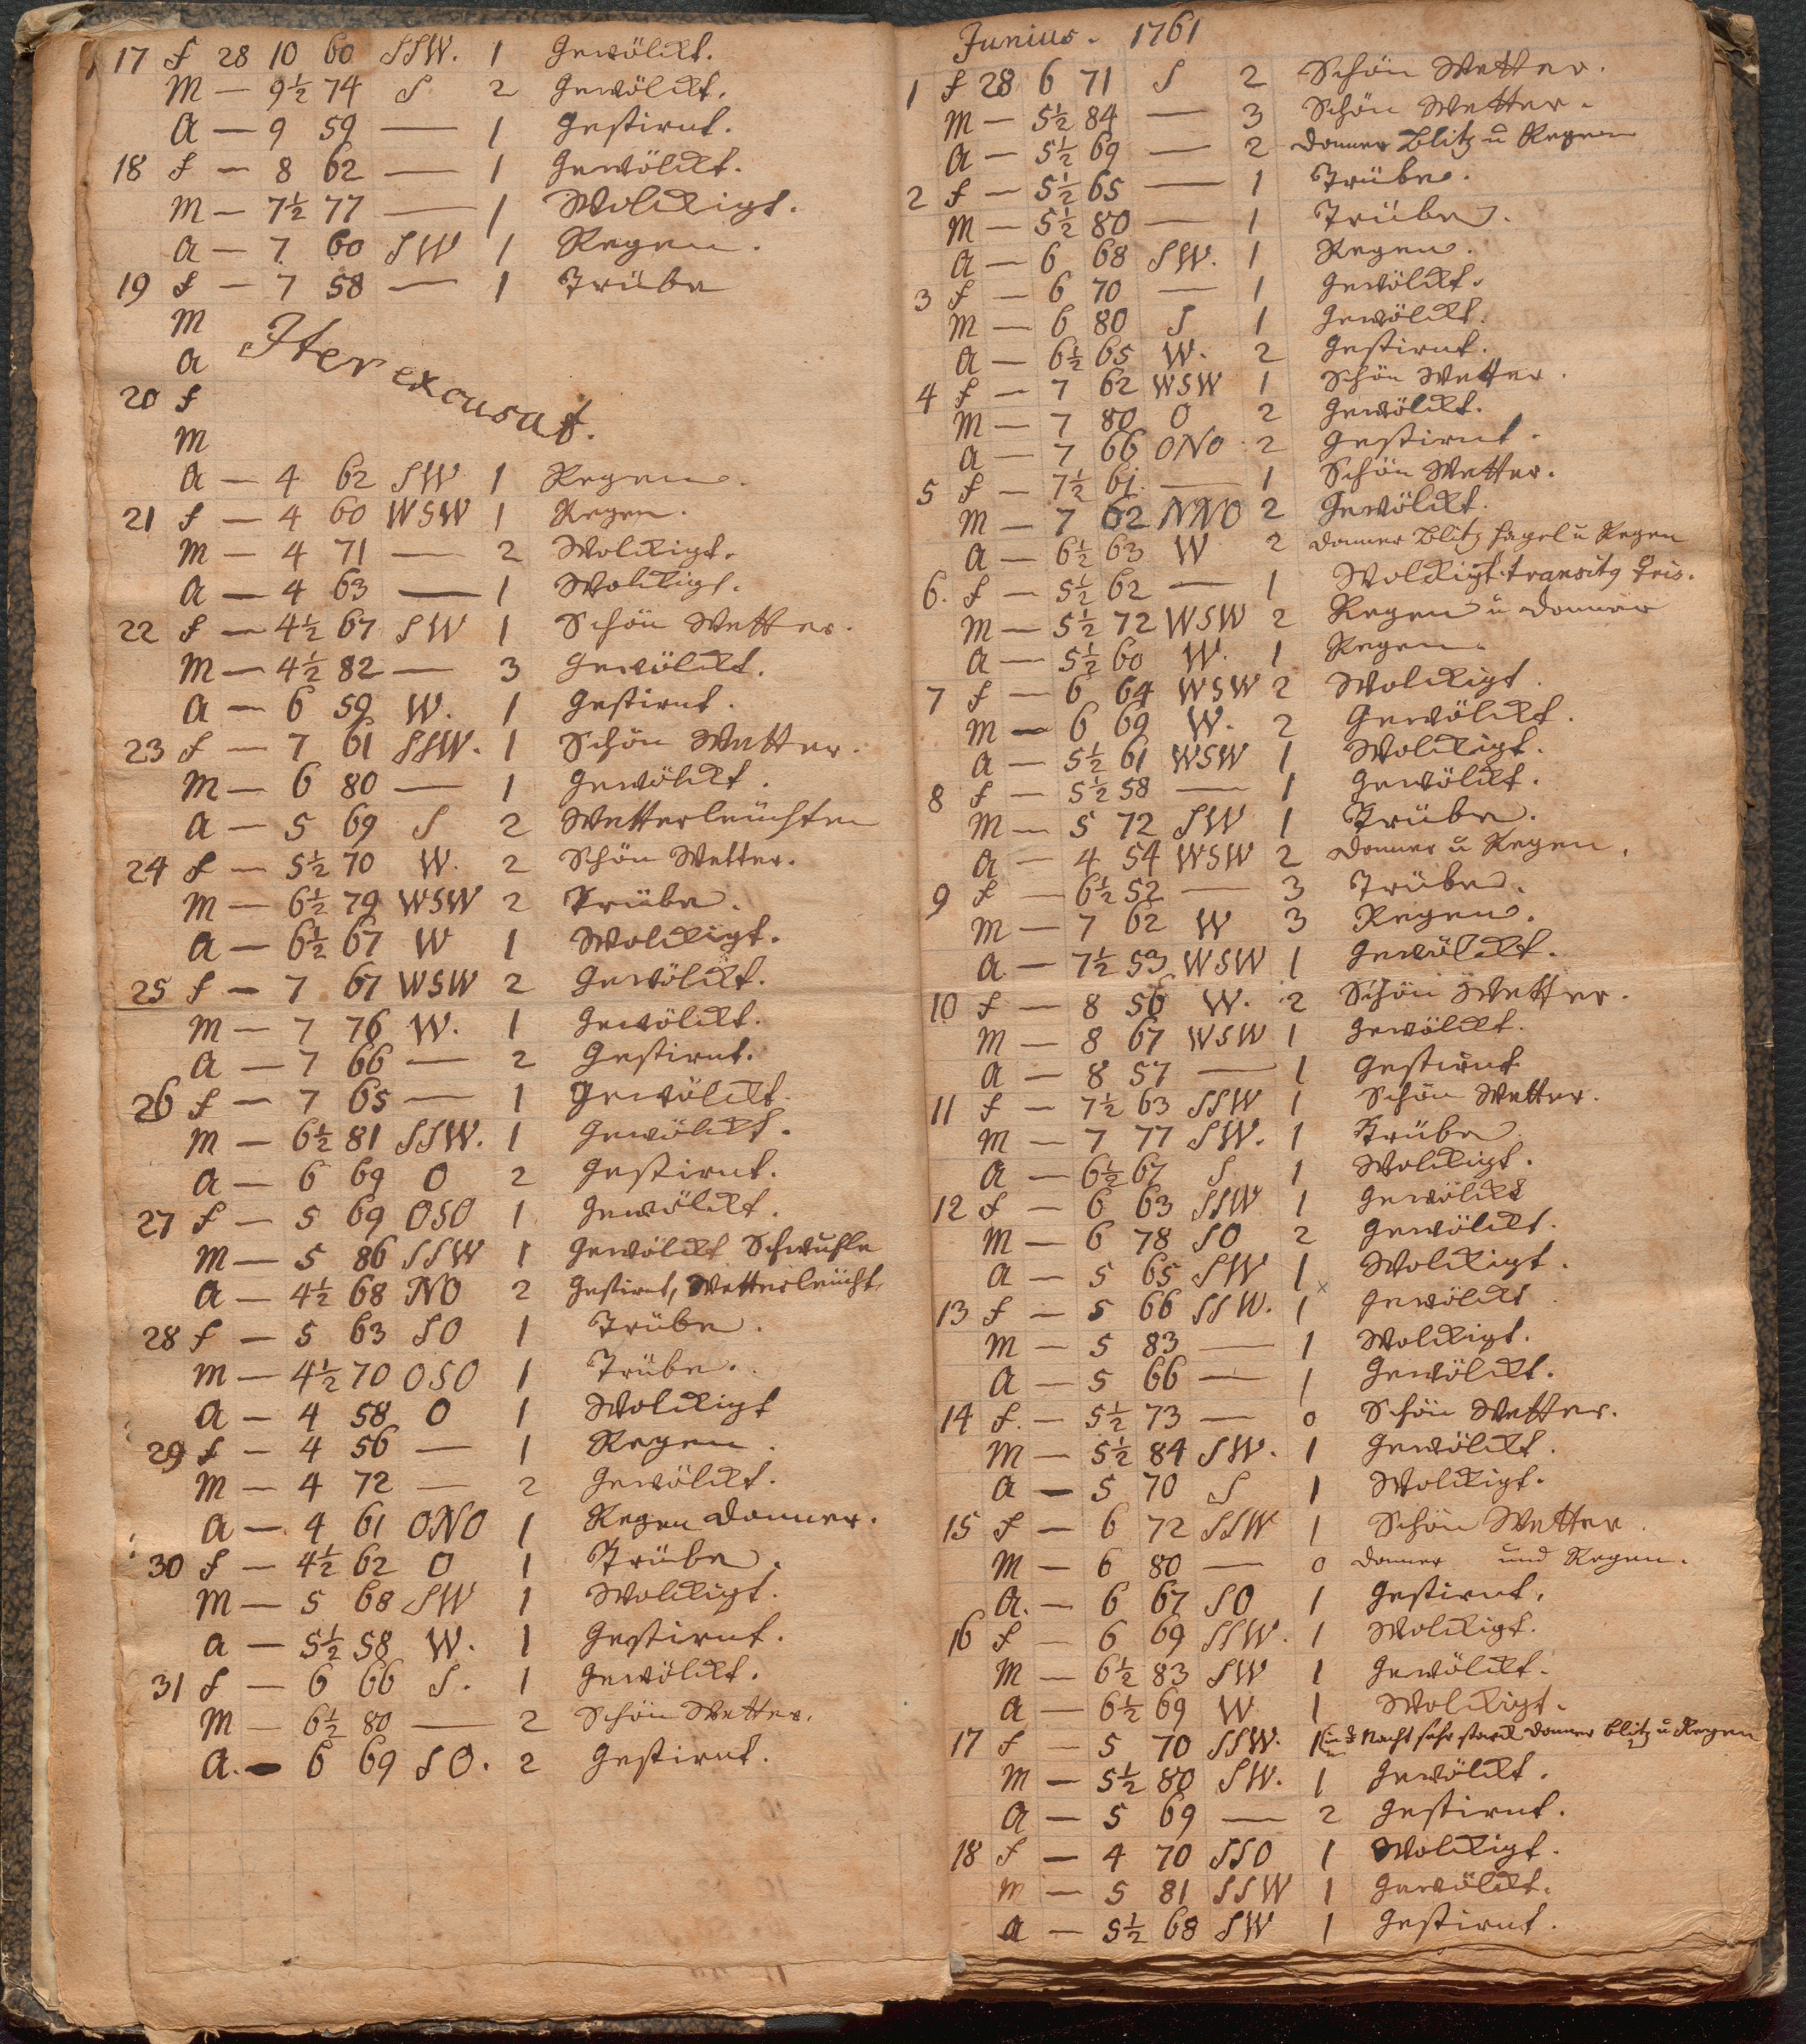 17 f 28 10 60 SSW. 1 Gewölckt.
M — 9½ 74 S 2 Gewölckt.
A — 9 59 — 1 Gestirnt.
18 f — 8 62 — 1 Gewölckt.
M — 7½ 77 — 1 Wolckigt.
A — 7 60 SW 1 Regen.
19 f — 7 58 — 1 Trübe
M
A
Iter excusat.
20 f
M
A — 4 62 SW 1 Regen.
21 f — 4 60 WSW 1 Regen.
M — 4 71 — 2 Wolckigt.
A — 4 63 — 1 Wolckigt.
22 f — 4½ 67 SW 1 Schön Wetter.
M — 4½ 82 — 3 Gewölckt.
A — 6 59 W. 1 Gestirnt.
23 f — 7 61 SSW. 1 Schön Wetter.
M — 6 80 — 1 Gewölckt.
A — 5 69 S 2 Wetterleüchten
24 f — 5½ 70 W. 2 Schön Wetter.
M — 6½ 79 WSW 2 Trübe.
A — 6½ 67 W 1 Wolckigt.
25 f — 7 67 WSW 2 Gewölckt.
M — 7 76 W. 1 Gewölckt.
A — 7 66 — 2 Gestirnt.
26 f — 7 65 — 1 Gewölckt.
M — 6½ 81 SSW. 1 Gewölckt.
A — 6 69 O 2 Gestirnt.
27 f — 5 69 OSO 1 Gewölckt.
M — 5 86 SSW 1 Gewölckt Schwuhle
A — 4½ 68 NO 2 Gestirnt, Wetterleücht.
28 f — 5 63 SO 1 Trübe.
M — 4½ 70 OSO 1 Trübe.
A — 4 58 O 1 Wolckigt
29 f — 4 56 — 1 Regen.
M — 4 72 — 2 Gewölckt.
A — 4 61 ONO 1 Regen Donner.
30 f — 4½ 62 O 1 Trübe.
M — 5 68 SW 1 Wolckigt.
A — 5½ 58 W. 1 Gestirnt.
31 f — 6 66 S. 1 Gewölckt.
M — 6½ 80 — 2 Schön Wetter.
A. — 6 69 SO. 2 Gestirnt.
Junius. 1761
1 f 28 6 71 S 2 Schön Wetter.
M — 5½ 84 — 3 Schön Wetter.
A — 5½ 69 — 2 Donner Blitz u Regen
2 f — 5½ 65 — 1 Trübe.
M — 5½ 80 — 1 Trübe.
A — 6 68 SW. 1 Regen.
3 f — 6 70 — 1 Gewölckt.
M — 6 80 S 1 Gewölckt.
A — 6½ 65 W. 2 Gestirnt.
4 f — 7 62 WSW 1 Schön Wetter.
M — 7 80 O 2 Gewölckt.
A — 7 66 ONO 2 Gestirnt.
5 f — 7½ 61. — 1 Schön Wetter.
M — 7 62 NNO 2 Gewölckt.
A — 6½ 63 W 2 Donner Blitz Hagel u Regen
6. f — 5½ 62 — 1 Wolckigt. transitg ♀ris.
M — 5½ 72 WSW 2 Regen u Donner
A — 5½ 60 W. 1 Regen.
7 f — 6 64 WSW 2 Wolckigt.
M — 6 69 W. 2 Gewölckt.
A — 5½ 61 WSW 1 Wolckigt.
8 f — 5½ 58 — 1 Gewölckt.
M — 5 72 SW 1 Trübe.
A — 4 54 WSW 2 Donner u Regen.
9 f — 6½ 52 — 3 Trübe.
M — 7 62 W 3 Regen.
A — 7½ 53 WSW 1 Gewölckt.
10 f — 8 56 W. 2 Schön Wetter.
M — 8 67 WSW 1 Gewölckt.
A — 8 57 — 1 Gestirnt
11 f — 7½ 63 SSW 1 Schön Wetter.
M — 7 77 SW. 1 Trübe
A — 6½ 67 S 1 Wolckigt.
12 f — 6 63 SSW 1 Gewölckt
M — 6 78 SO 2 Gewölckt.
A — 5 65 SW 1 Wolckigt.
13 f — 5 66 SSW. 1 × Gewölckt
M — 5 83 — 1 Wolckigt.
A — 5 66 — 1 Gewölckt.
14 f. — 5½ 73 — 0 Schön Wetter.
M — 5½ 84 SW. 1 Gewölckt.
A — 5 70 S 1 Wolckigt.
15 f — 6 72 SSW 1 Schön Wetter.
M — 6 80 — 0 Donner und Regen.
A. — 6 67 SO 1 Gestirnt.
16 f — 6 69 SSW. 1 Wolckigt.
M — 6½ 83 SW 1 Gewölckt.
A — 6½ 69 W 1 Wolckigt.
17 f — 5 70 SSW. 1 in d Nacht sehr starck Donner Blitz u Regen
M — 5½ 80 SW. 1 Gewölckt.
A — 5 69 — 2 Gestirnt.
18 f — 4 70 SSO 1 Wolckigt.
M — 5 81 SSW 1 Gewölckt.
A — 5½ 68 SW 1 Gestirnt.